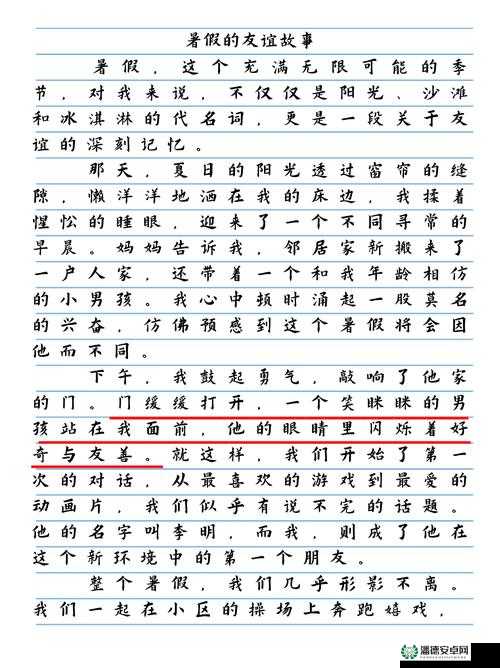 暑假的友谊故事
暑假，这个充满无限可能的季
节，对我来说，不仅仅是阳光、沙滩
和冰淇淋的代名词，更是一段关于友
谊的深刻记忆。
那天，夏日的阳光透过窗帘的缝
隙，懒洋洋地洒在我的床边，我揉着
惺忪的睡眼，迎来了一个不同寻常的
早晨。妈妈告诉我，邻居家新搬来了
一户人家，还带着一个和我年龄相仿
的小男孩。我心中顿时涌起一股莫名
的兴奋，仿佛预感到这个暑假将会因
他而不同。
下午，我鼓起勇气，敲响了他家
的门。门缓缓打开，一个笑眯眯的男
孩站在我面前，他的眼睛里闪烁着好
奇与友善。就这样，我们开始了第一
次的对话，从最喜欢的游戏到最爱的
动画片，我们似乎有说不完的话题。
他的名字叫李明，而我，则成了他在
这个新环境中的第一个朋友。
整个暑假，我们几乎形影不离。
我们一起在小区的操场上奔跑嬉戏，
潘德安卓网